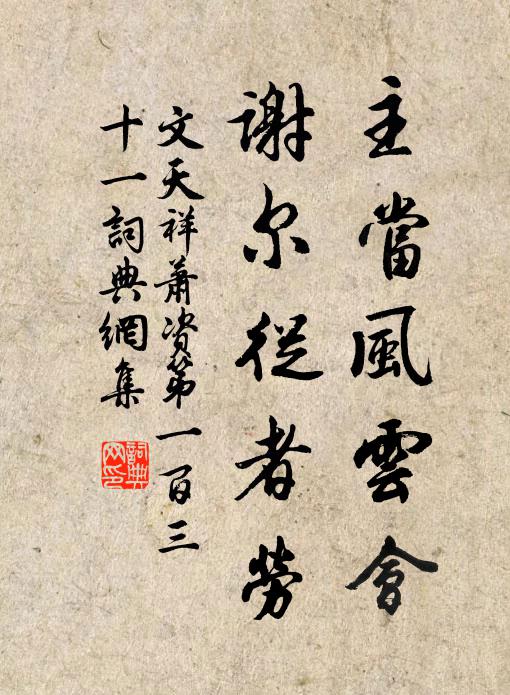 主當風雲會
謝尔從者勞
文天祥蕭資第一百三
十一詞典網集
詞典網印